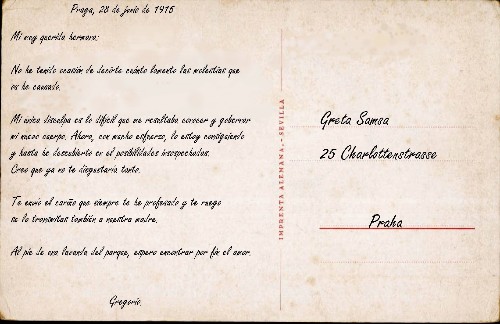 Praga, 28 de junio de 1915
Mi muy querida hermana:
No he tenido ocasión de decirte cuánto lamento las molestias que
os he causado.
Mi única disculpa es lo difícil que me resultaba conocer y gobernar
mi nuevo cuerpo. Ahora, con mucho esfuerzo, lo estoy consiguiendo
y hasta he descubierto en él posibilidades insospechadas.
Creo que ya no te disgustaría tanto.
Te envío el cariño que siempre te he profesado y te ruego
se lo transmitas también a nuestra madre.
Al pie de una lavanda del parque, espero encontrar por fin el amor.
Gregorio.
IMPRENTA ALEMANA.- SEVILLA
Greta Samsa
25 Charlottenstrasse
Praha